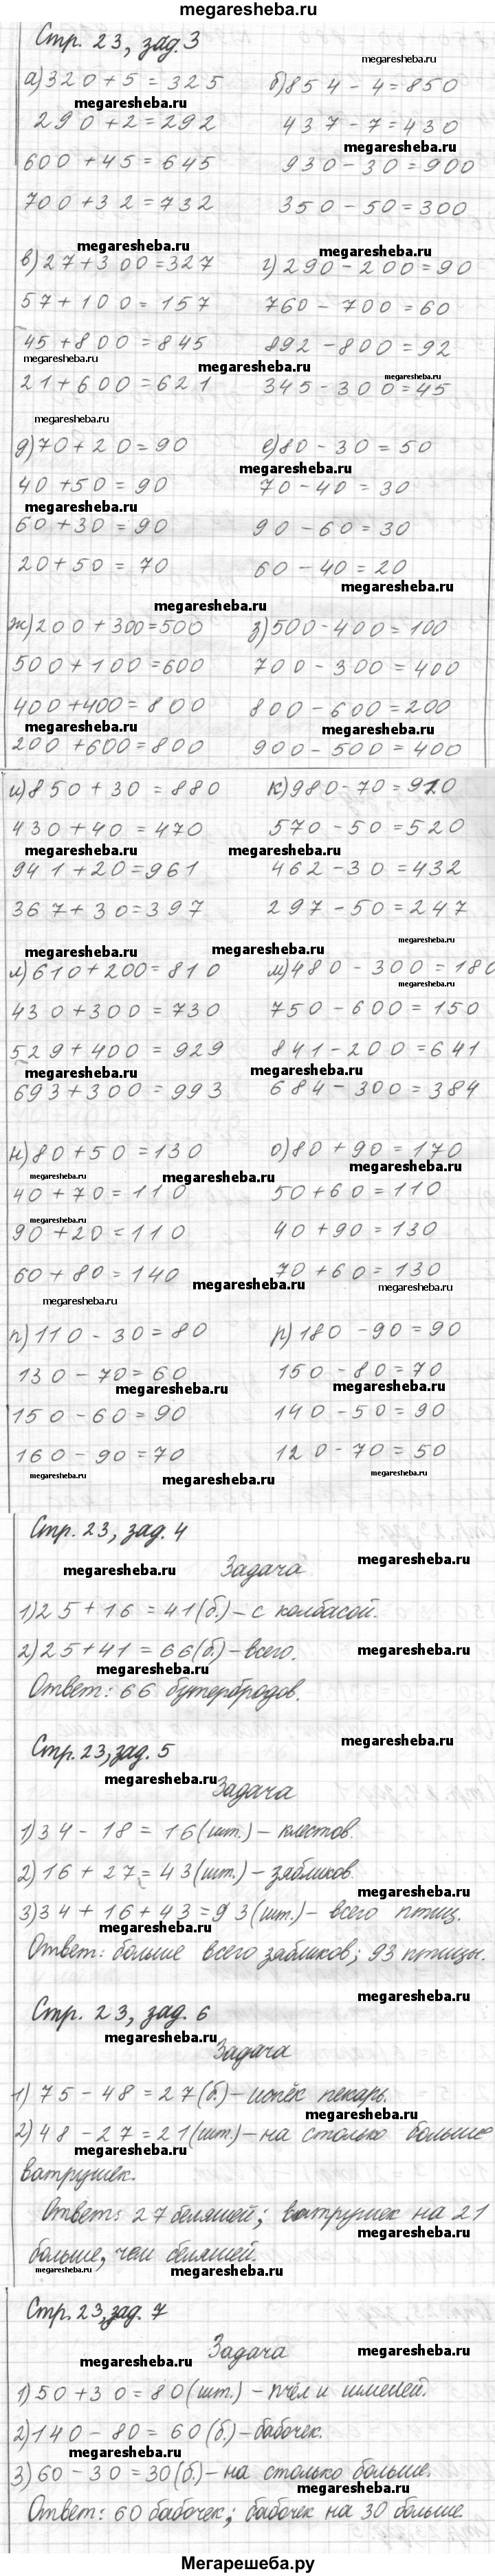 megaresheba.ru
Стр. 23, зад. 3
а) 320 + 5 = 325
290 + 2 = 292
600 + 45 = 645
700 + 32 = 732
б) 854 - 4 = 850
437 - 7 = 430
930 - 30 = 900
350 - 50 = 300
в) 27 + 300 = 327
57 + 100 = 157
45 + 800 = 845
21 + 600 = 621
г) 290 - 200 = 90
760 - 700 = 60
892 - 800 = 92
345 - 300 = 45
д) 70 + 20 = 90
40 + 50 = 90
60 + 30 = 90
20 + 50 = 70
е) 80 - 30 = 50
70 - 40 = 30
90 - 60 = 30
60 - 40 = 20
ж) 200 + 300 = 500
500 + 100 = 600
400 + 400 = 800
200 + 600 = 800
з) 500 - 400 = 100
700 - 300 = 400
800 - 600 = 200
900 - 500 = 400
и) 850 + 30 = 880
430 + 40 = 470
941 + 20 = 961
367 + 30 = 397
к) 980 - 70 = 910
570 - 50 = 520
462 - 30 = 432
297 - 50 = 247
л) 610 + 200 = 810
430 + 300 = 730
529 + 400 = 929
693 + 300 = 993
м) 480 - 300 = 180
750 - 600 = 150
841 - 200 = 641
684 - 300 = 384
н) 80 + 50 = 130
40 + 70 = 110
90 + 20 = 110
60 + 80 = 140
о) 80 + 90 = 170
50 + 60 = 110
40 + 90 = 130
70 + 60 = 130
п) 110 - 30 = 80
130 - 70 = 60
150 - 60 = 90
160 - 90 = 70
р) 180 - 90 = 90
150 - 80 = 70
140 - 50 = 90
120 - 70 = 50
Стр. 23, зад. 4
Задача
1) 25 + 16 = 41 (б.) - с колбасой.
2) 25 + 41 = 66 (б.) - всего.
Ответ: 66 бутербродов.
Стр. 23, зад. 5
Задача
1) 34 - 18 = 16 (шт.) - клестов.
2) 16 + 27 = 43 (шт.) - зябликов.
3) 34 + 16 + 43 = 93 (шт.) - всего птиц.
Ответ: больше всего зябликов; 93 птицы.
Стр. 23, зад. 6
Задача
1) 75 - 48 = 27 (б.) - испёк пекарь.
2) 48 - 27 = 21 (шт.) - на столько больше
ватрушек.
Ответ: 27 беляшей; ватрушек на 21
больше, чем беляшей.
Стр. 23, зад. 7
Задача
1) 50 + 30 = 80 (шт.) - пчёл и шмелей.
2) 140 - 80 = 60 (б.) - бабочек.
3) 60 - 30 = 30 (б.) - на столько больше.
Ответ: 60 бабочек; бабочек на 30 больше.
Мегарешеба.ру